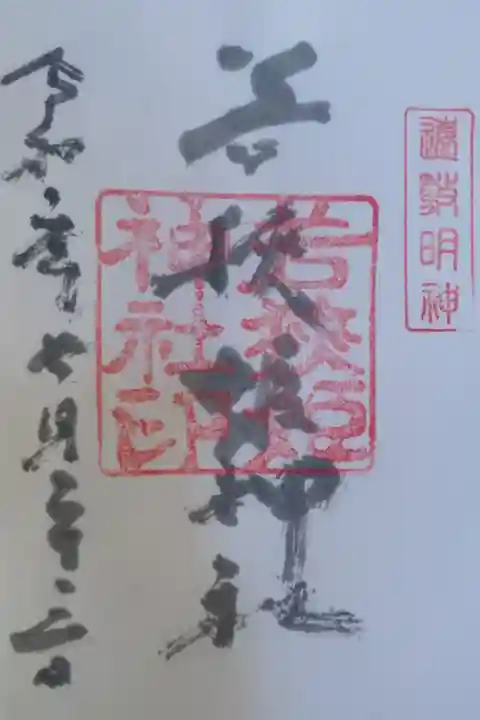 遠敷明神
若狭姫神社
若狭姫
神社印
令和元年七月二十二日